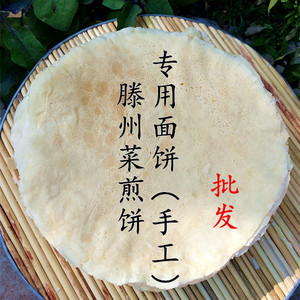 专用面饼（手工）
滕州菜煎饼
批发